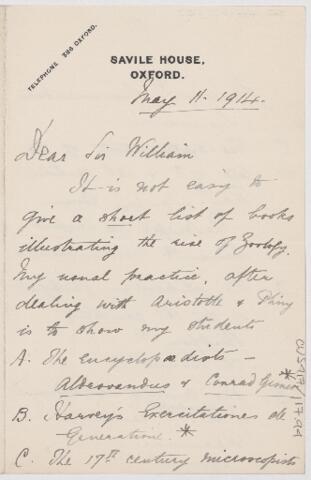 TELEPHONE 386 OXFORD.
SAVILE HOUSE,
OXFORD.
May 11. 1914.
Dear Sir William
It is not easy to
give a short list of books
illustrating the rise of Zoology.
My usual practice, after
dealing with Aristotle & Pliny
is to show my students
A. The encyclopædists –
Aldrovandus & Conrad Gesner *
B. Harvey's Exercitationes de
Generatione. *
C. The 17th century microscopists